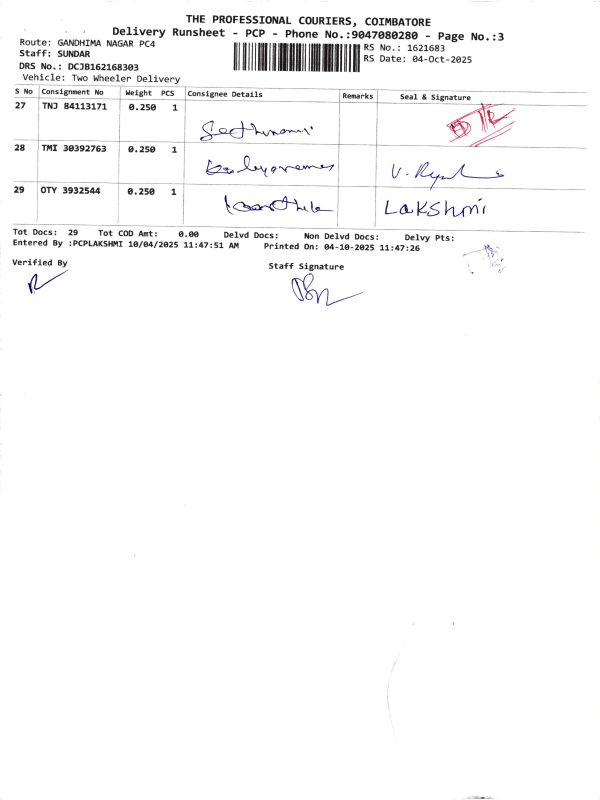 THE PROFESSIONAL COURIERS, COIMBATORE
Delivery Runsheet - PCP - Phone No.:9047080280 - Page No.:3
Route: GANDHIMA NAGAR PC4
RS No.: 1621683
Staff: SUNDAR
RS Date: 04-Oct-2025
DRS No.: DCJB162168303
Vehicle: Two Wheeler Delivery
S No Consignment No Weight PCS Consignee Details Remarks Seal & Signature
27 TNJ 84113171 0.250 1
28 TMI 30392763 0.250 1
29 OTY 3932544 0.250 1 LaKShmi
Tot Docs: 29 Tot COD Amt: 0.00 Delvd Docs: Non Delvd Docs: Delvy Pts:
Entered By :PCPLAKSHMI 10/04/2025 11:47:51 AM Printed On: 04-10-2025 11:47:26
Verified By
Staff Signature